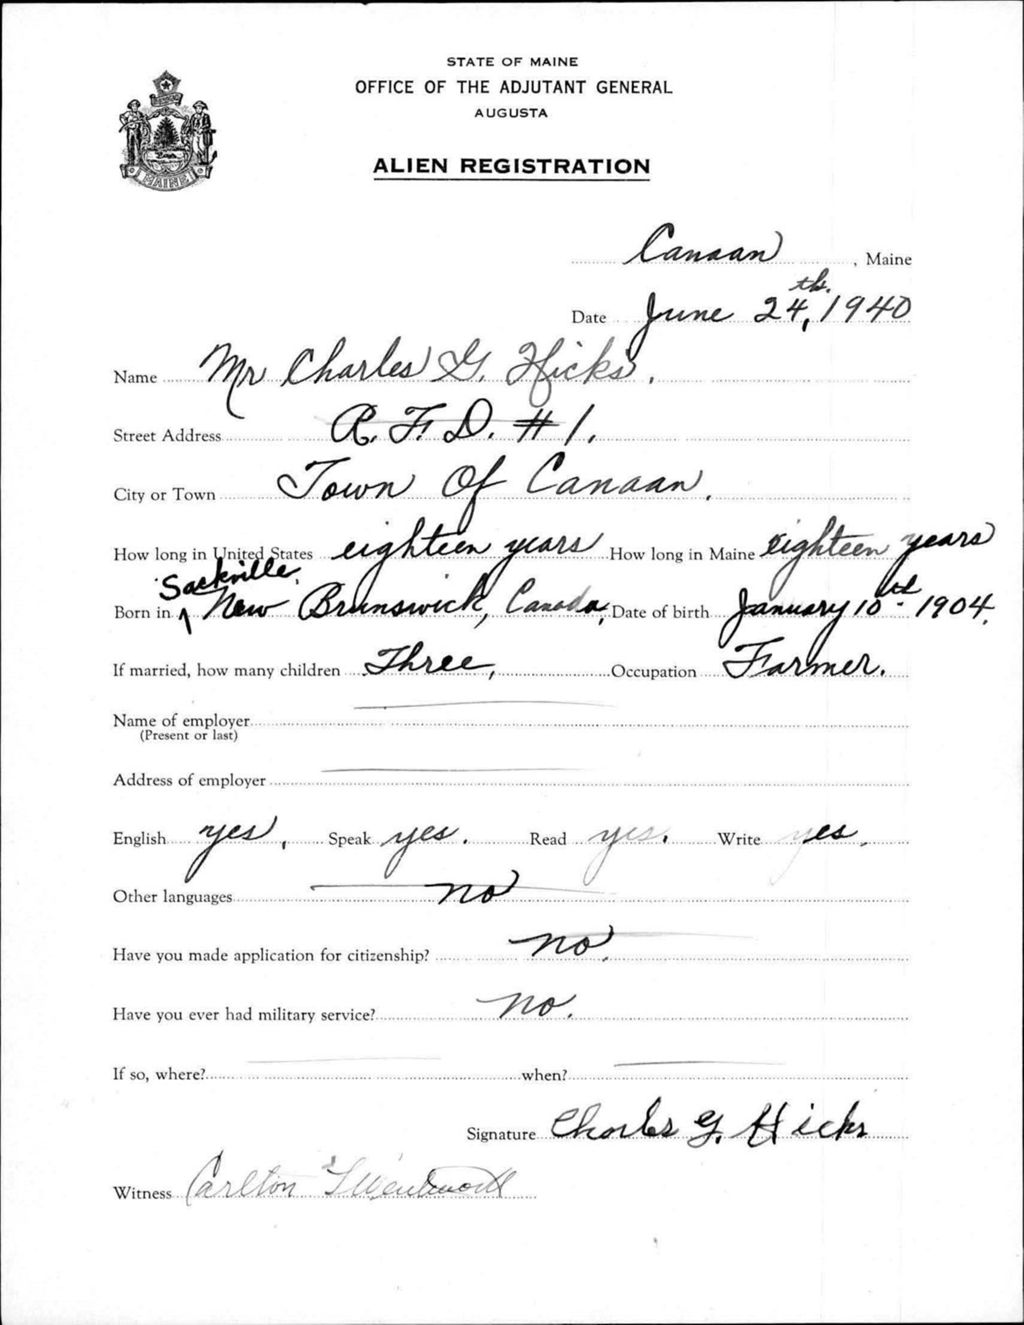 STATE OF MAINE
OFFICE OF THE ADJUTANT GENERAL
AUGUSTA
ALIEN REGISTRATION
MAINE
Canaan, Maine
Date June 24th, 1940
Name Mr Charles G. Hicks.
Street Address R. F. D. #1.
City or Town Town Of Canaan.
How long in United States eighteen years How long in Maine eighteen years
Sackville,
Born in New Brunswick, Canada, Date of birth January 10th 1904.
If married, how many children Three, Occupation Farmer.
Name of employer
(Present or last)
Address of employer
English yes, Speak yes. Read yes. Write yes.
Other languages no
Have you made application for citizenship? no.
Have you ever had military service? no.
If so, where? when?
Signature Charles G. Hicks
Witness Carlton Wentworth